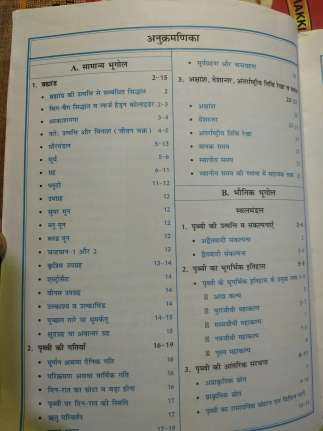 अनुक्रमणिका
A. सामान्य भूगोल
1. ब्रह्मांड 2-15
• ब्रह्मांड की उत्पत्ति से सम्बन्धित सिद्धांत 2
• बिग-बैंग सिद्धान्त व लार्ज हैड्रन कोलाइडर 2-3
• आकाशगंगा 3
• तारे: उत्पत्ति और विनाश (जीवन चक्र) 4-5
• सौरमंडल 5
• सूर्य 5-6
• ग्रह 6-11
• प्लूटो 11-12
• उपग्रह 12
• सुपर मून 12
• ब्लू मून 12
• ब्लड मून 12
• चन्द्रयान-1 और 2 12
• कृत्रिम उपग्रह 13-14
• एस्ट्रॉयड 14
• बौना उपग्रह 14
• उल्काश्म व उल्कापिंड 14
• पुच्छल तारे या धूमकेतु 14-15
• क्षुद्रग्रह या अवान्तर ग्रह 15
2. पृथ्वी की गतियाँ 16-19
• घूर्णन अथवा दैनिक गति 16
• परिक्रमण अथवा वार्षिक गति 16
• दिन-रात का छोटा व बड़ा होना 16
• पृथ्वी पर दिन-रात की स्थिति 17
• ऋतु परिवर्तन 17
• सूर्यग्रहण और चन्द्रग्रहण
3. अक्षांश, देशान्तर, अंतर्राष्ट्रीय तिथि रेखा व
• अक्षांश
• देशान्तर
• अंतर्राष्ट्रीय तिथि रेखा
• मानक समय
• स्थानीय समय
• स्थानीय समय की गणना में सहायक
B. भौतिक भूगोल
स्थलमंडल
1. पृथ्वी की उत्पत्ति व संकल्पनाएँ
• अद्वैतवादी संकल्पना
• द्वैतवादी संकल्पना
2. पृथ्वी का भूगर्भिक इतिहास
• पृथ्वी के भूगर्भिक इतिहास के प्रमुख
आद्य कल्प
पुराजीवी महाकल्प
मध्यजीवी महाकल्प
नवजीवी महाकल्प
नूतन महाकल्प
3. पृथ्वी की आंतरिक संरचना
• अप्राकृतिक स्रोत
• प्राकृतिक स्रोत
• पृथ्वी का रासायनिक संगठन एवं